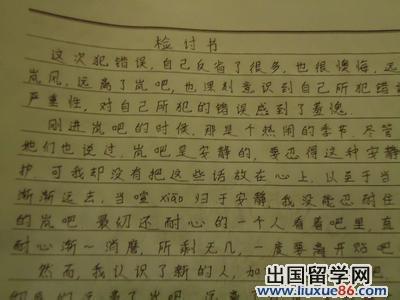 检讨书
这次犯错误,自己反省了很多,也很懊悔,远
岚风,远离了岚吧,也深刻意识到自己所犯错
严重性,对自己所犯的错误感到了羞愧
刚进岚吧的时候,那是个热闹的季节.尽管
她们也说过,岚吧是安静的,要忍得这种安静
护,可我却没有把这些话放在心上,以至于当
渐渐远去,当喧xiāo归于安静,我没能忍耐住
的岚吧.最初还耐心的一个人看着吧里,直
耐心渐一消磨,所剩无几,一度要离开贴吧
然而,我认识了新的人,加
远离了岚吧
出国留学网
www.liuxue86.com